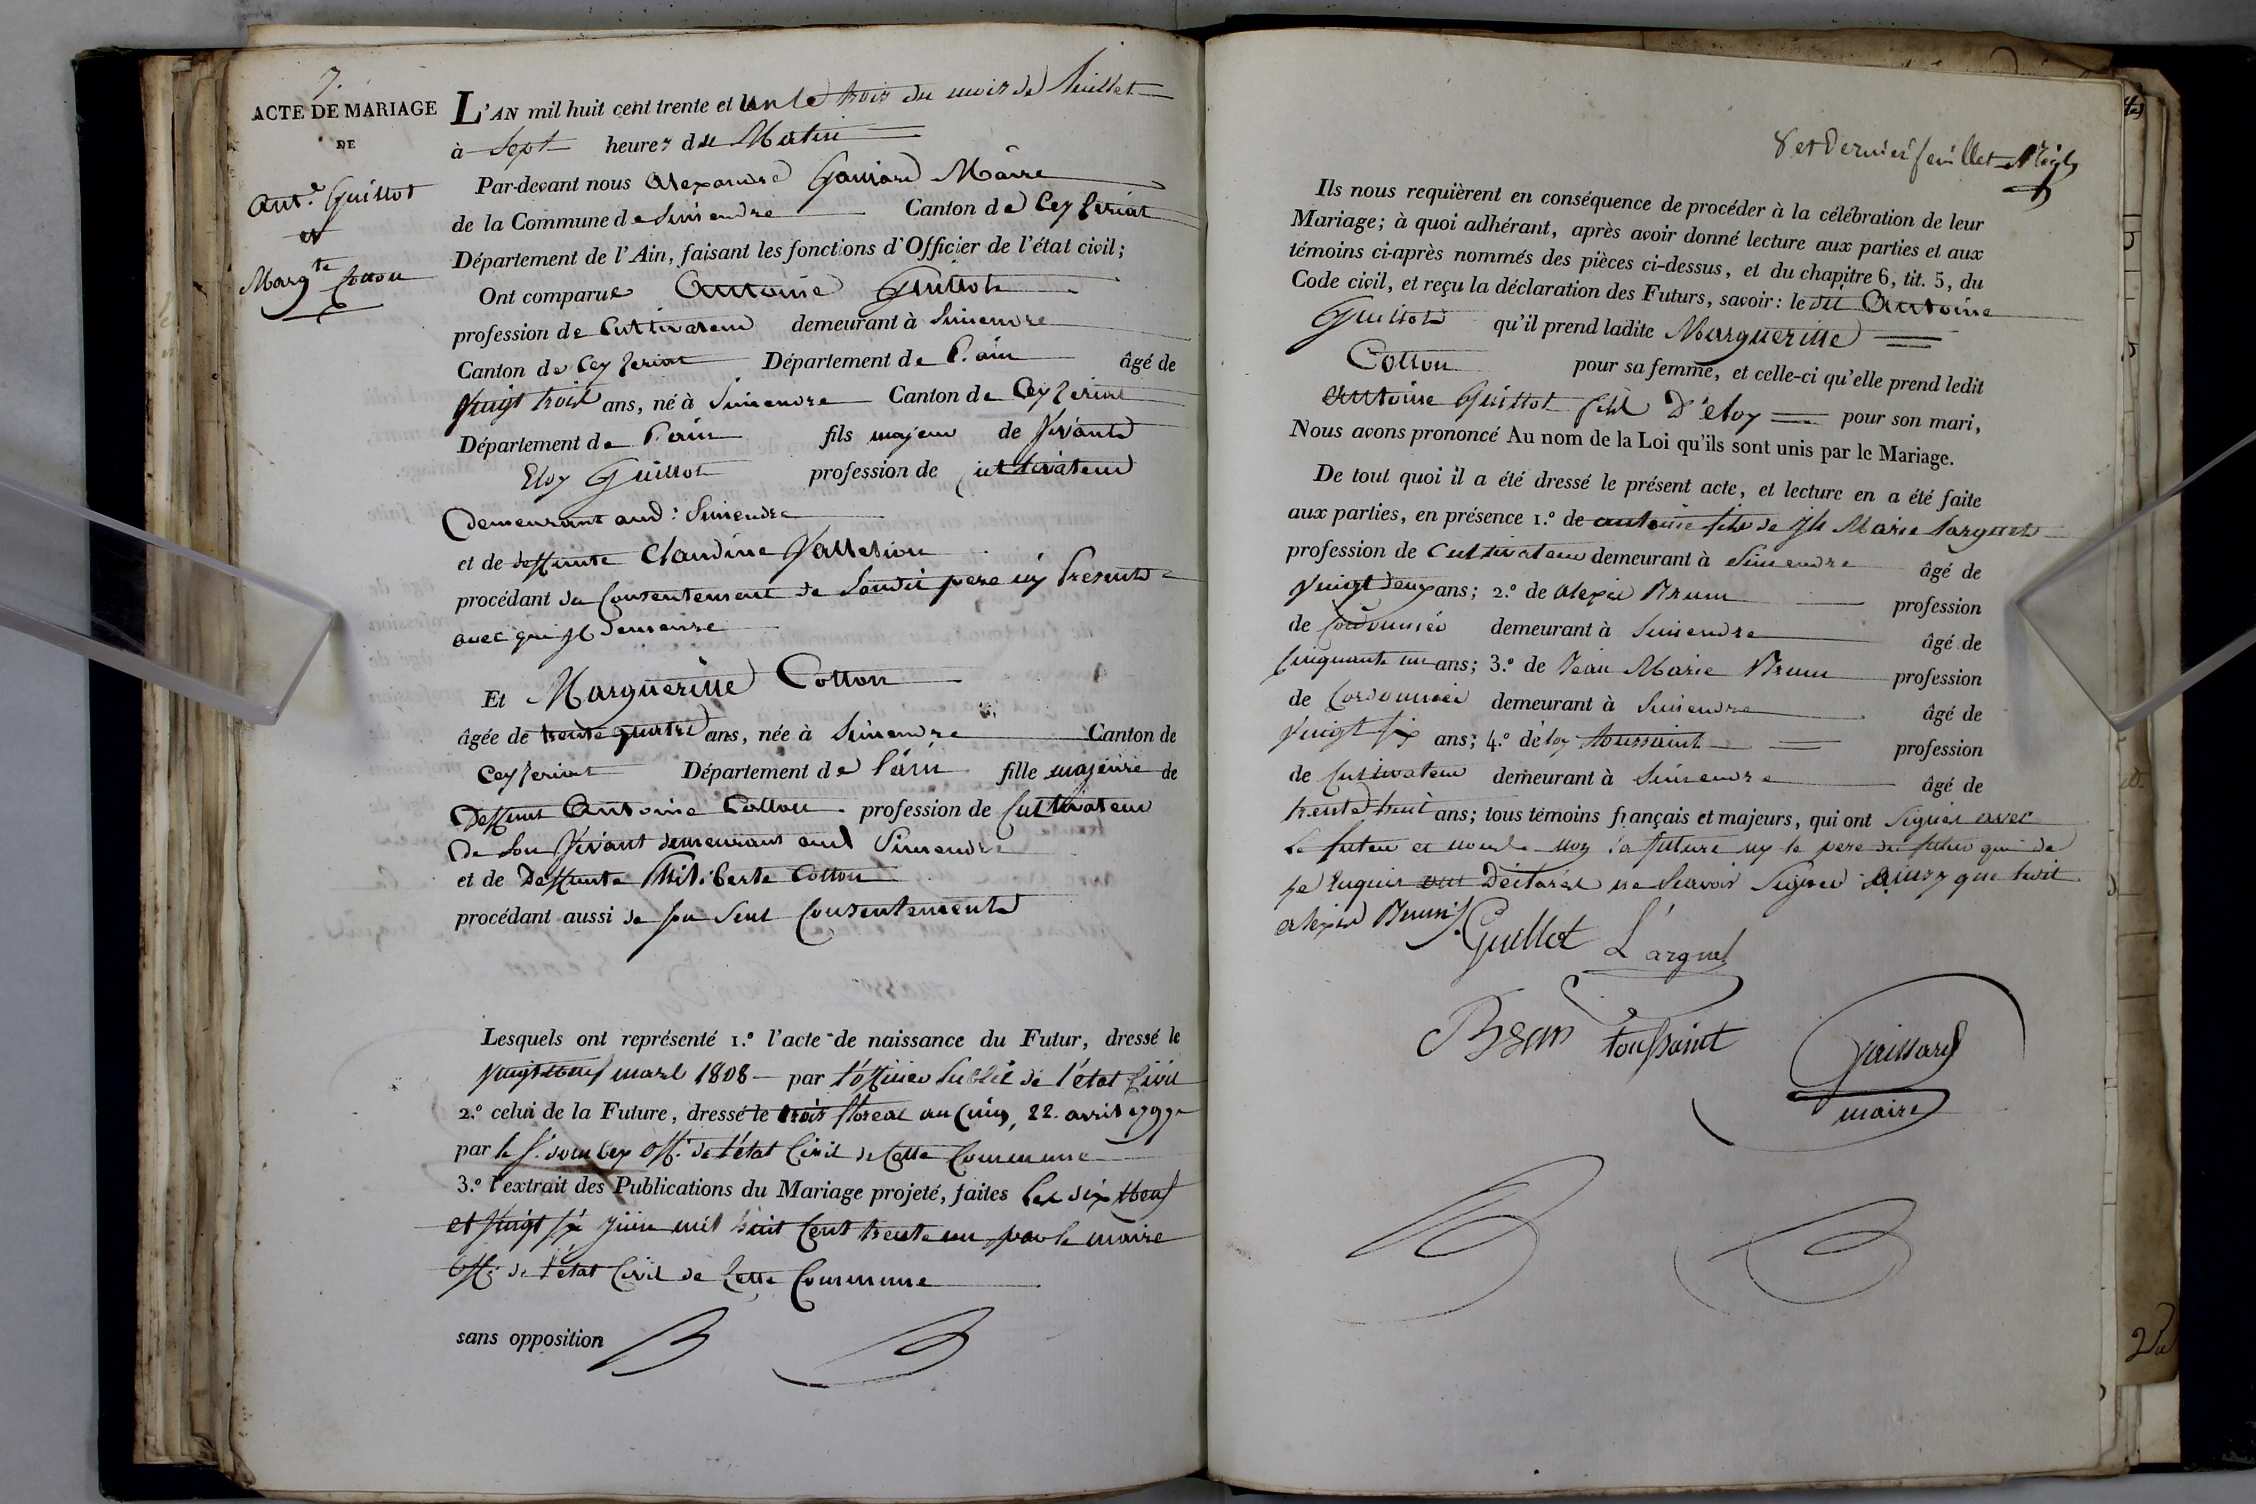 7.
ACTE DE MARIAGE
DE
Ant.e Guillot
et
Marg.te Cotton
L'AN mil huit cent trente et un le trois du mois de Juillet
à Sept heures du Matin
Par-devant nous Alexandre Gaillard Maire
de la Commune de Simandre Canton de Ceyzeriat
Département de l'Ain, faisant les fonctions d'Officier de l'état civil;
Ont comparue Antoine Guillot
profession de Cultivateur demeurant à Simandre
Canton de Ceyzeriat Département de l'ain âgé de
Vingt trois ans, né à Simandre Canton de Ceyzeriat
Département de l'ain fils majeur de Vivant
Eloy Guillot profession de cultivateur
Demeurant aud: Simandre
et de deffunte Claudine
procédant du Consentement de Sondit pere icy Present
avec qui Jl demeure
Et Margueritte Cotton
âgée de trente quatre ans, née à Simandre Canton de
Ceyzeriat Département de l'ain fille majeure de
Deffunt Antoine Cotton profession de Cultivateur
De Son Vivant demeurant aud Simandre
et de Deffunte Philiberte Cotton
procédant aussi de son Seul Consentement
Lesquels ont représenté 1.º l'acte de naissance du Futur, dressé le
vingt neuf mars 1808 par l'officier Public de l'état Civil
2.º celui de la Future, dressé le trois floreal an Cinq, 22. avril 1797
par le S. off. de l'état Civil de Cette Commune
3.º l'extrait des Publications du Mariage projeté, faites Les dix neuf
et vingt six juin mil huit Cent trente un par le maire
off. de l'état Civil de Cette Commune
sans opposition
8 et Dernier feuillet
Ils nous requièrent en conséquence de procéder à la célébration de leur
Mariage; à quoi adhérant, après avoir donné lecture aux parties et aux
témoins ci-après nommés des pièces ci-dessus, et du chapitre 6, tit. 5, du
Code civil, et reçu la déclaration des Futurs, savoir: le dit Antoine
Guillot qu'il prend ladite Margueritte
Cotton pour sa femme, et celle-ci qu'elle prend ledit
Antoine Guillot fils D'éloy pour son mari,
Nous avons prononcé Au nom de la Loi qu'ils sont unis par le Mariage.
De tout quoi il a été dressé le présent acte, et lecture en a été faite
aux parties, en présence 1.º de antoine fils de Jh Marie Larguet
profession de Cultivateur demeurant à Simandre âgé de
Vingt deux ans; 2.º de alexis Brun profession
de Cordonnier demeurant à Simandre âgé de
Cinquante un ans; 3.º de Jean Marie Brun profession
de Cordonnier demeurant à Simandre âgé de
Vingt six ans; 4.º d'eloy toussaint profession
de Cultivateur demeurant à Simandre âgé de
trente huit ans; tous témoins français et majeurs, qui ont Signés avec
Le futur et nous non la future ny le pere du futur qui de
Ce Requis ont Déclarés ne Savoir Signer ainsy que
alexis Brun.
Guillot L'arguet
Brun toussaint
Gaillard
maire